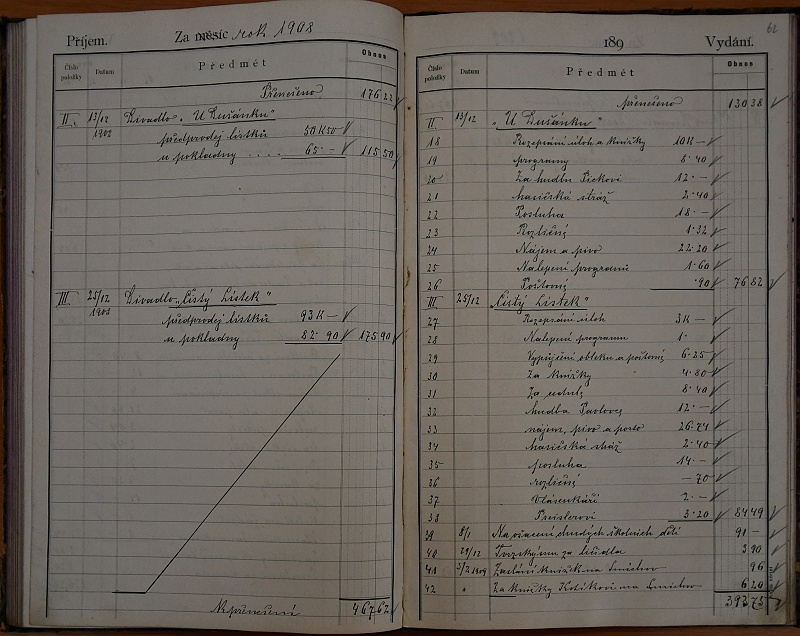 Příjem.
Za měsíc rok 1908
Číslo položky
Datum
Předmět
Obnos
Přenešeno 176 22
II. 13/12 Divadlo „U Dušánku"
1908
předprodej lístků 50 K 50
u pokladny .... 65 – 115 50
III. 25/12 Divadlo „Čistý Lístek"
1908
předprodej lístků 93 K –
u pokladny 82 90 175 90
K přenešení 467 62
62
189
Vydání.
Číslo položky
Datum
Předmět
Obnos
přenešeno 130 38
II 13/12 „U Dušánku"
18 Rozepsání úloh a knížky 10 K –
19 programy 8·40
20 Za hudbu 12 –
21 hasičská stráž 2·40
22 Posluha 18 –
23 Rozličný 1·32
24 Nájem a pivo 22·20
25 Nalepení programů 1·60
26 Poštovný ·90 76 82
III 25/12 „Čistý Lístek"
27 Rozepsání úloh 3 K –
28 Nalepení programů 1·–
29 Vypůjčení obleku a poštovný 6·25
30 Za knížky 4·80
31 Za 8·40
32 hudba Pavlovec 12·–
33 nájem, pivo a porto 26·74
34 hasičská stráž 2·40
35 posluha 14·–
36 rozličný – 70
37 Vlásenkáři 2·–
38 Preislerovi 3·20 84 49
39 8/1 Na ošacení chudých školních dětí 91 –
40 29/12 za líčidla 3 90
41 3/2 1909 Zaslání knížek na Smíchov 96
42 " Za knížky na Smíchov 6 20
393 75